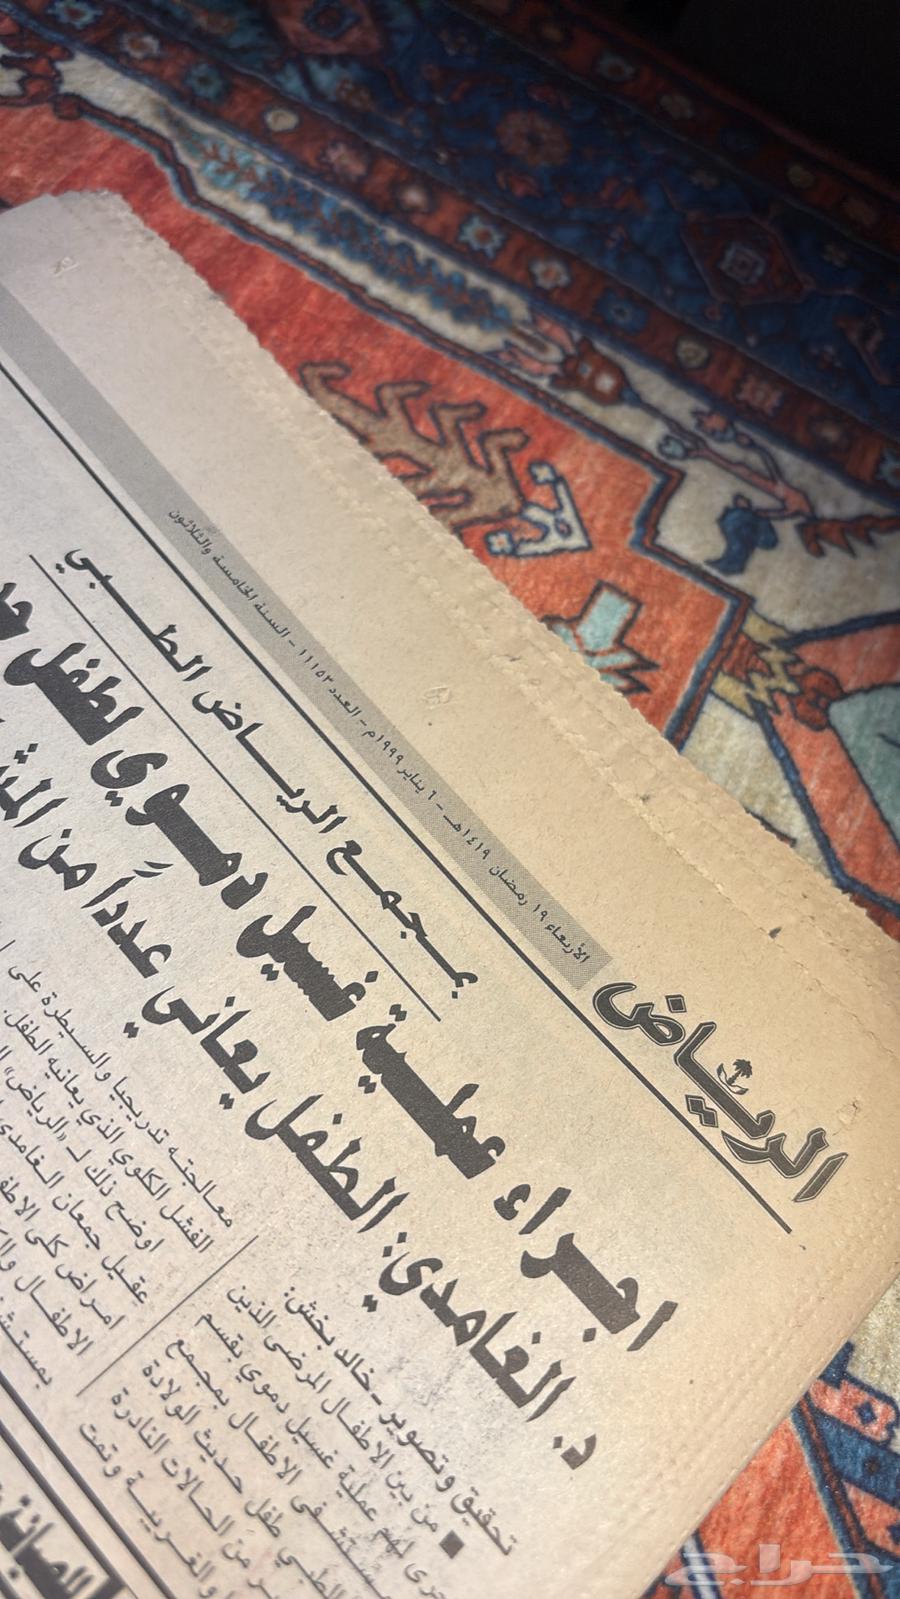 الرياض
الأربعاء ١٩ رمضان ١٤١٩هـ - ٦ يناير ١٩٩٩م - العدد ١١١٥٣ - السنة الخامسة والثلاثون
بمجمع الرياض الطبي
اجراء عملية غسيل دموي لطفل
د. الغامدي: الطفل يعاني عدداً من
تحقيق وتصوير - خالد بخش:
■ من بين الاطفال المرضى الذين
لهم عملية غسيل دموي بقسم
الاطفال بمجمع
الطبي طفل حديث الولادة
من الحالات النادرة
والغريبة وتمت
معالجته تدريجيا والسيطرة على
الفشل الكلوي الذي يعانيه الطفل.
اوضح ذلك لـ «الرياض»
عقيل جمعان الغامدي
امراض كلى
الاطفال
حراج